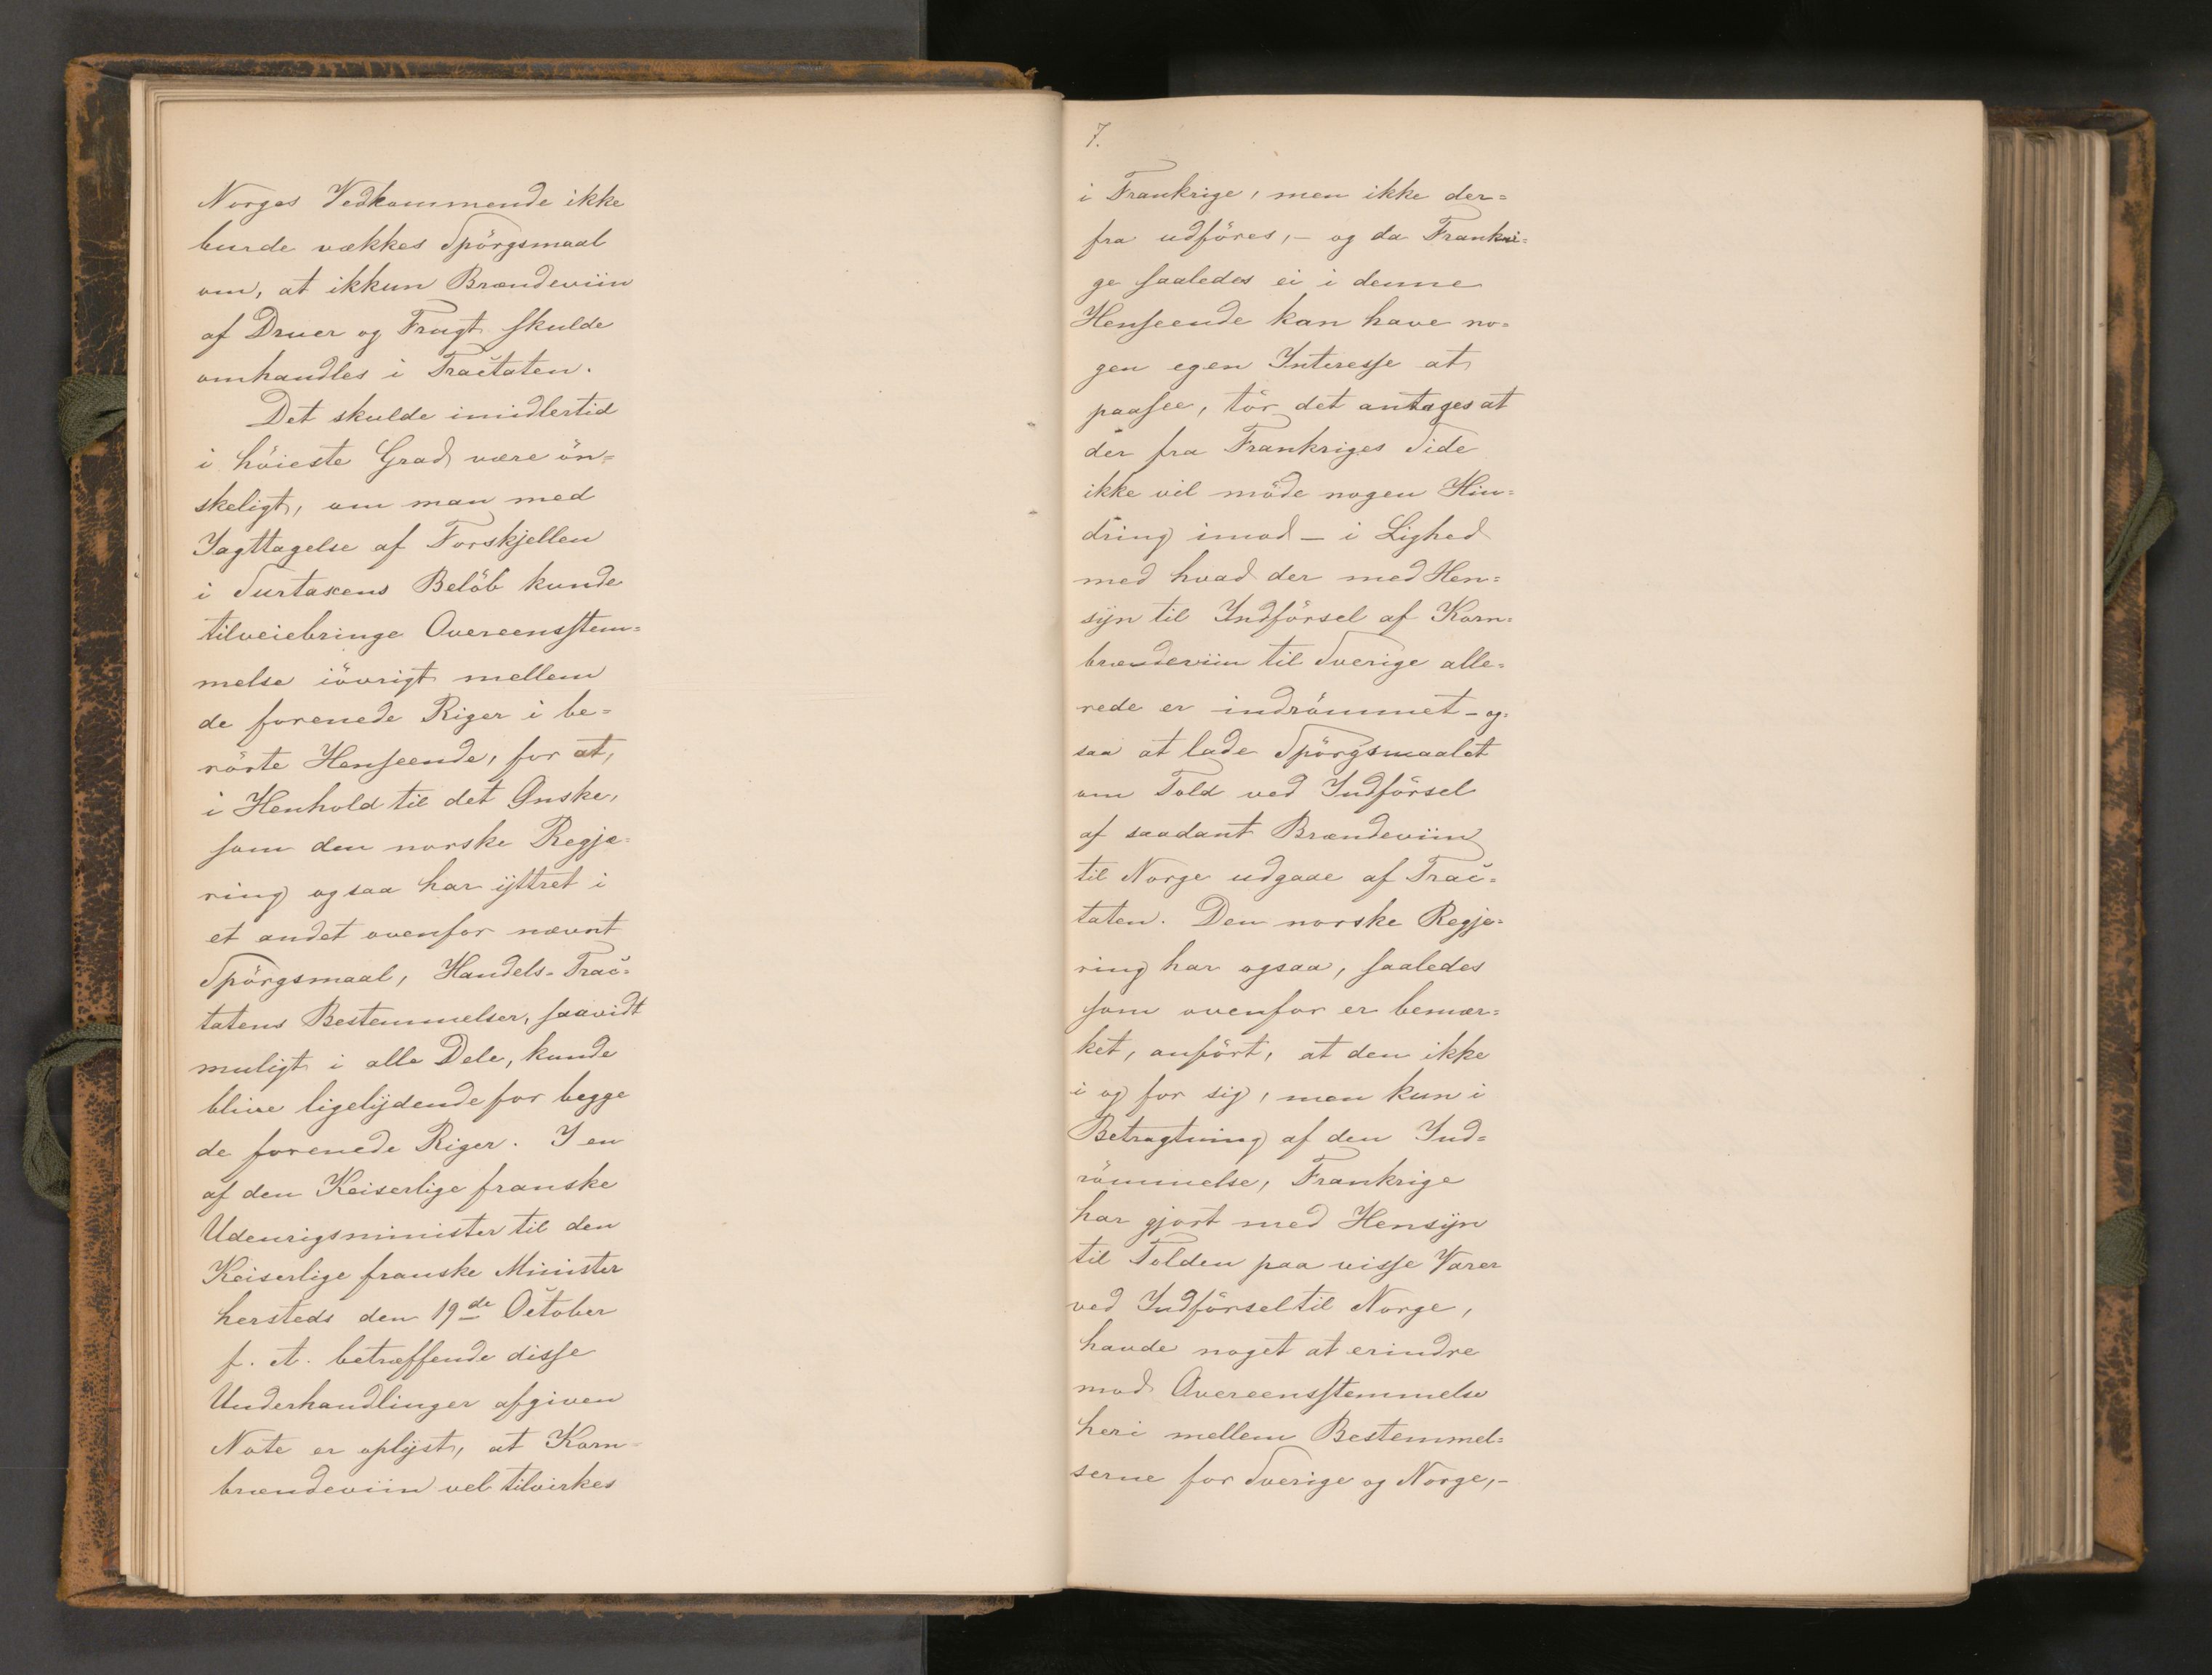 Norges Vedkommende ikke
burde vækkes Spörgsmaal
om, at ikkun Brændeviin
af Druer og Frugt skulde
omhandles i Tractaten.
Det skulde imidlertid
i höieste Grad være ön-
skeligt, om man med
Iagttagelse af Forskjellen
i Surtaxens Belöb kunde
tilveiebringe Overeensstem-
melse iövrigt mellem
de forenede Riger i be-
rörte Henseende, for at,
i Henhold til det Ønske,
som den norske Regje-
ring ogsaa har ÿttret i
et andet ovenfor nævnt
Spörgsmaal, Handels-Trac-
tatens Bestemmelser, saavidt
muligt i alle Dele, kunde
blive ligelÿdende for begge
de forenede Riger. I en
af den Keiserlige franske
Udenrigsminister til den
Keiserlige franske Minister
hersteds den 19de October
f. A. betræffende disse
Underhandlinger afgiven
Note er oplÿst, at Korn-
brændeviin vel tilvirkes
7.
i Frankrige, men ikke der-
fra udföres, - og da Frankri-
ge saaledes ei i denne
Henseende kan have no-
gen egen Interesse at
paasee, tör det antages at
der fra Frankriges Side
ikke vil möde nogen Hin-
dring imod - i Lighed
med hvad der med Hen-
sÿn til Indförsel af Korn-
brændeviin til Sverige alle-
rede er indrömmet - og-
saa at lade Spörgsmaalet
om Told ved Indförsel
af saadant Brændeviin
til Norge udgaae af Trac-
taten. Den norske Regje-
ring har ogsaa, saaledes
som ovenfor er bemær-
ket, anfört, at den ikke
i og for sig, men kun i
Betragtning af den Ind-
römmelse, Frankrige
har gjort med Hensÿn
til Tolden paa visse Varer
ved Indförsel til Norge,
havde noget at erindre
mod Overeensstemmelse
heri mellem Bestemmel-
serne for Sverige og Norge, -